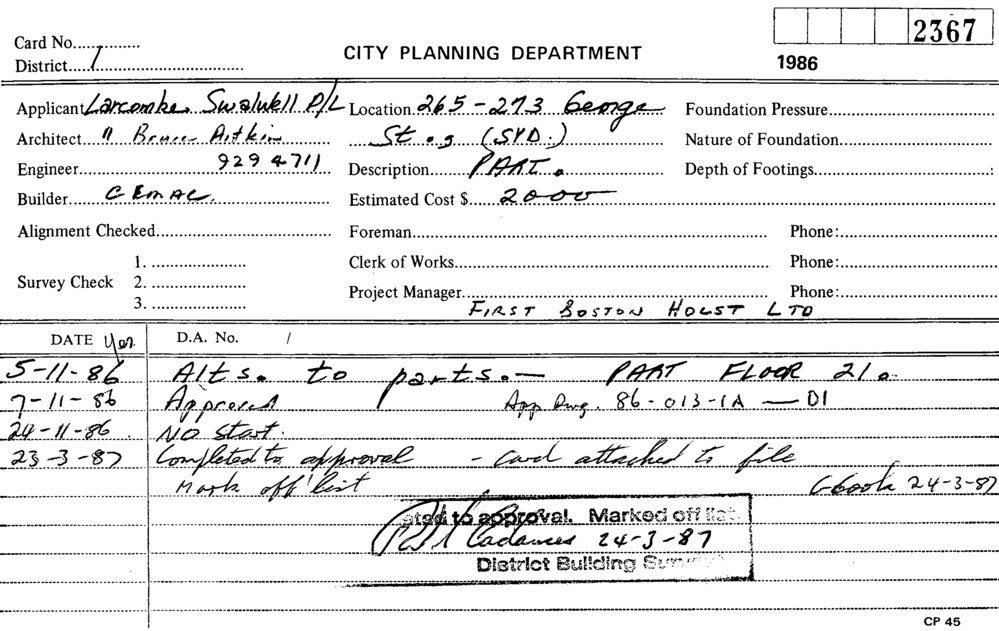 2367
Card No...............
CITY PLANNING DEPARTMENT
District 1
1986
Applicant Larcombe Swalwell P/L Location 265-273 George Foundation Pressure
Architect " Bruce Aitkin St. (SYD.) Nature of Foundation
Engineer 929 4711 Description PART. Depth of Footings
Builder GEMAC. Estimated Cost $ 2000
Alignment Checked Foreman Phone:
1. Clerk of Works Phone:
Survey Check 2.
3. Project Manager Phone:
FIRST BOSTON HOLST LTD
DATE D.A. No. /
5-11-86 Alts. to parts. — PART FLOOR 21.
7-11-86 Approved App Dwg. 86-013-1A — D1
24-11-86. NO start.
23-3-87 Completed to approval - card attached to file
Mark off list 24-3-87
to approval. Marked off list.
24-3-87
District Building
CP 45